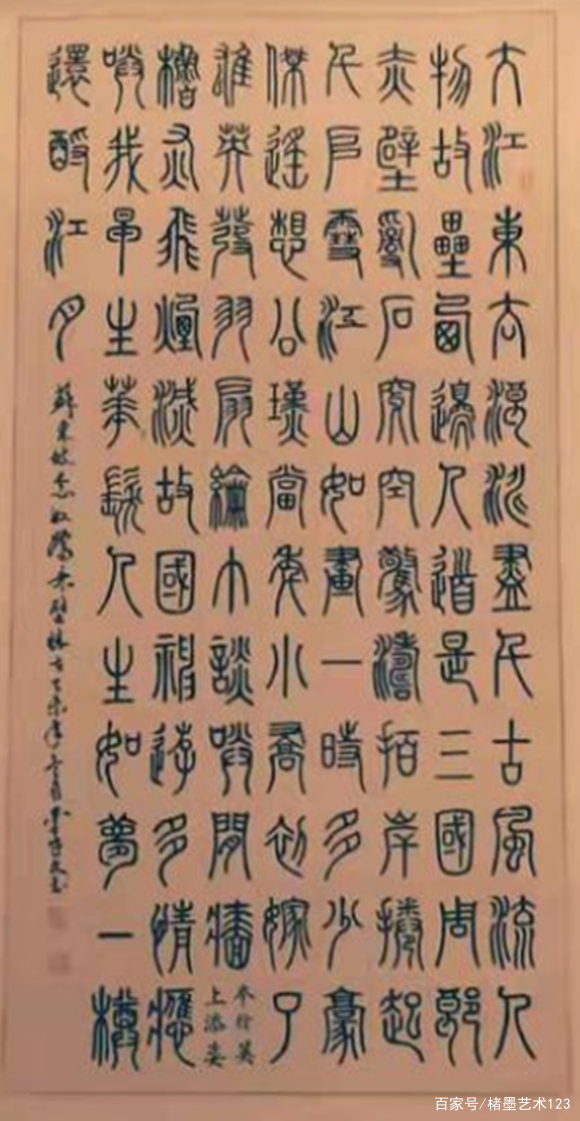 大江東去浪淘盡千古風流人
物故壘西邊人道是三國周郎
赤壁亂石穿空驚濤拍岸捲起
千堆雪江山如畫一時多少豪
傑遙想公瑾當年小喬初嫁了
雄英發羽扇綸巾談笑間檣
本行英
上添姿
櫓灰飛煙滅故國神遊多情應
笑我早生華髮人生如夢一樽
還酹江月
蘇東坡念奴嬌赤壁懷古
百家号/楮墨艺术123